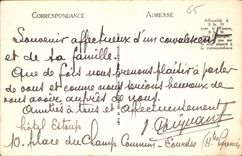 CORRESPONDANCE ADRESSE
65
Souvenir affectueux d'un convalescent
et de sa famille.
Que de fois nous prenons plaisir à parler
de vous et comme nous serions heureux de
vous avoir auprès de nous.
Amitiés à tous et affectueusement
hôtel Estoup
10, place du Champ Commun - Lourdes (Htes Pyrénées)